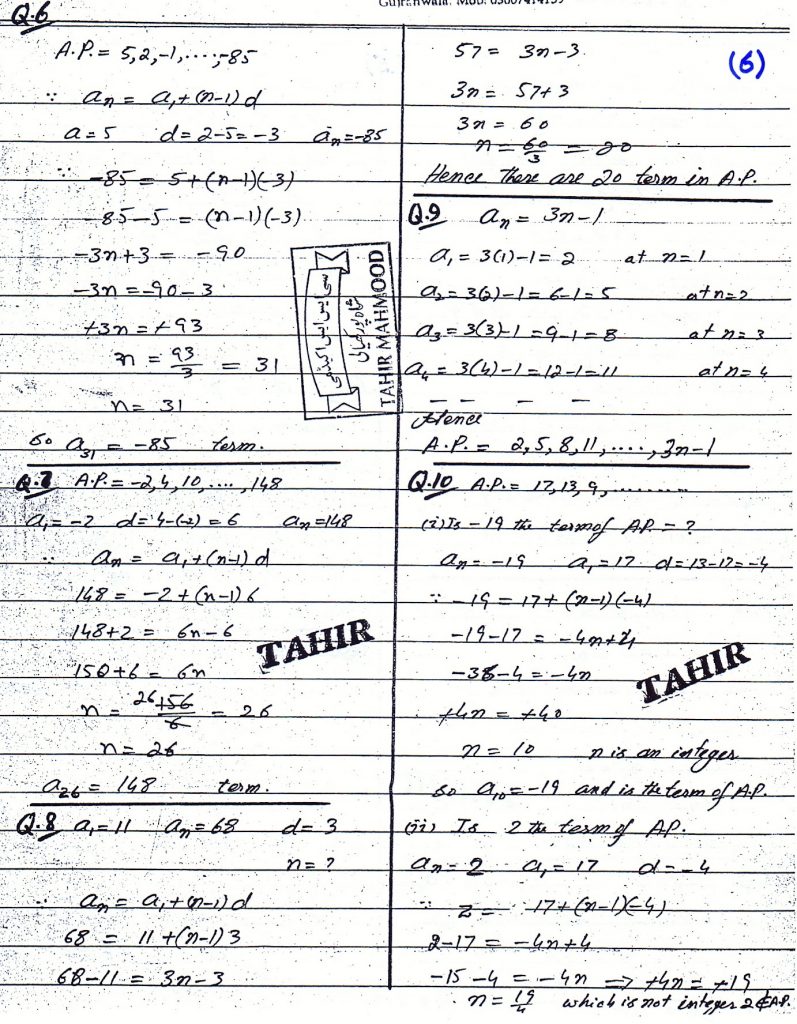 Gujranwala. Mob: 03007414159
Q.6
A.P. = 5, 2, -1, ....., -85
∵ aₙ = a₁ + (n-1) d
a = 5 d = 2-5 = -3 aₙ = -85
∵ -85 = 5 + (n-1)(-3)
-85-5 = (n-1)(-3)
-3n+3 = -90
-3n = -90-3
+3n = +93
n = 93/3 = 31
n = 31
so a₃₁ = -85 term.
Q.7 A.P. = -2, 4, 10, ....., 148
a₁ = -2 d = 4-(-2) = 6 aₙ = 148
∵ aₙ = a₁ + (n-1) d
148 = -2 + (n-1) 6
148+2 = 6n-6
150+6 = 6n
n = 26 156/6 = 26
n = 26
a₂₆ = 148 term.
Q.8 a₁ = 11 aₙ = 68 d = 3
n = ?
∵ aₙ = a₁ + (n-1) d
68 = 11 + (n-1) 3
68-11 = 3n-3
(6)
57 = 3n-3
3n = 57+3
3n = 60
n = 60/3 = 20
Hence there are 20 term in A.P.
Q.9 aₙ = 3n-1
a₁ = 3(1)-1 = 2 at n=1
a₂ = 3(2)-1 = 6-1 = 5 at n=2
a₃ = 3(3)-1 = 9-1 = 8 at n=3
a₄ = 3(4)-1 = 12-1 = 11 at n=4
Hence
A.P. = 2, 5, 8, 11, ....., 3n-1
Q.10 A.P. = 17, 13, 9, ..........
(i) Is -19 the term of A.P. = ?
aₙ = -19 a₁ = 17 d = 13-17 = -4
∵ -19 = 17 + (n-1)(-4)
-19-17 = -4n+4
-36-4 = -4n
+4n = +40
n = 10 n is an integer
so a₁₀ = -19 and is the term of A.P.
(ii) Is 2 the term of A.P.
aₙ = 2 a₁ = 17 d = -4
∵ 2 = 17 + (n-1)(-4)
2-17 = -4n+4
-15-4 = -4n ⇒ +4n = +19
n = 19/4 which is not integer 2 ∉ A.P.
TAHIR MAHMOOD
TAHIR
TAHIR